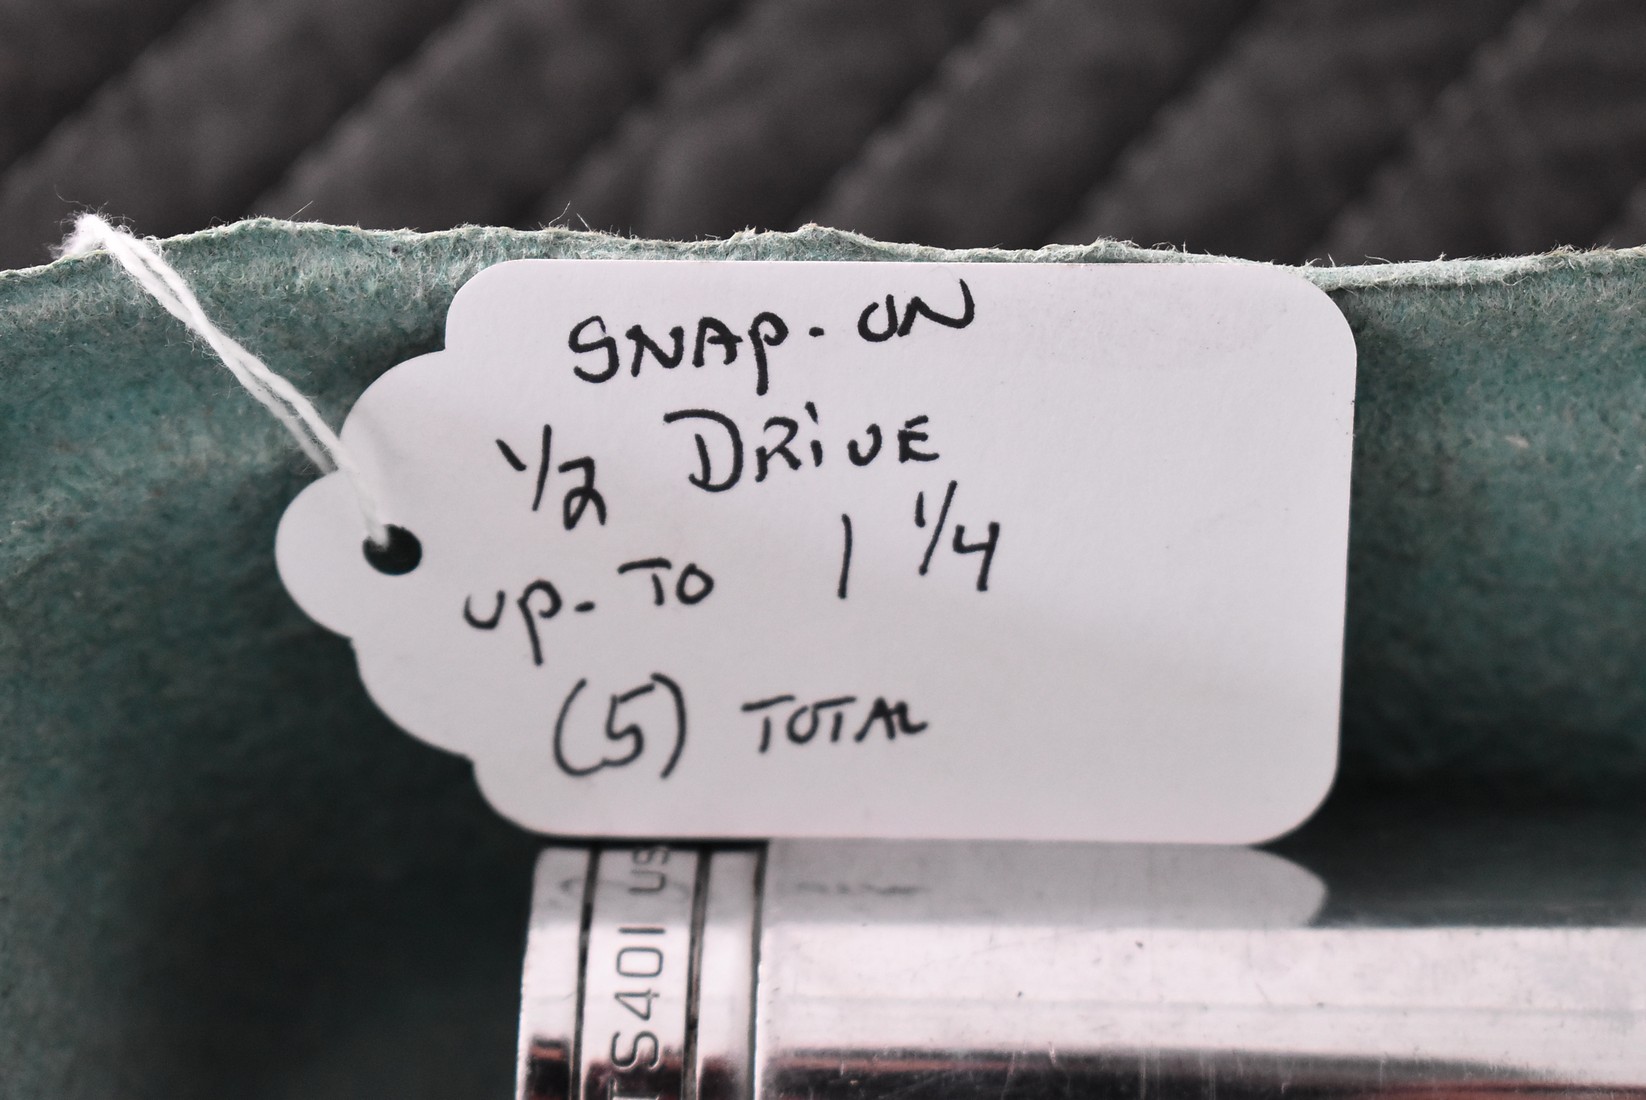 SNAP-ON
1/2 DRIVE
UP-TO 1 1/4
(5) TOTAL
TS401 US